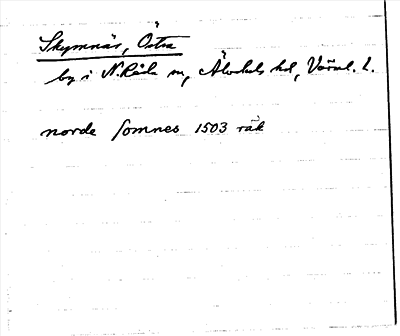 Skymnäs, Östra
by i N. Råda sn, Älvdals hd, Värml. l.
norde somnes 1503 räk